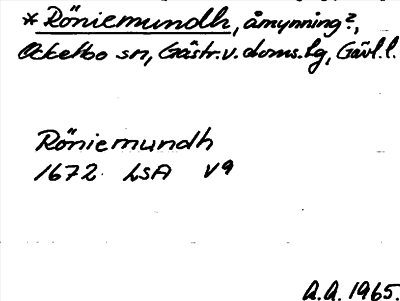 *Röniemundh, åmynning?,
Ockelbo sn, Gästr.v.doms.lg, Gävl.l.
Röniemundh
1672 LSA V9
A.A. 1965.